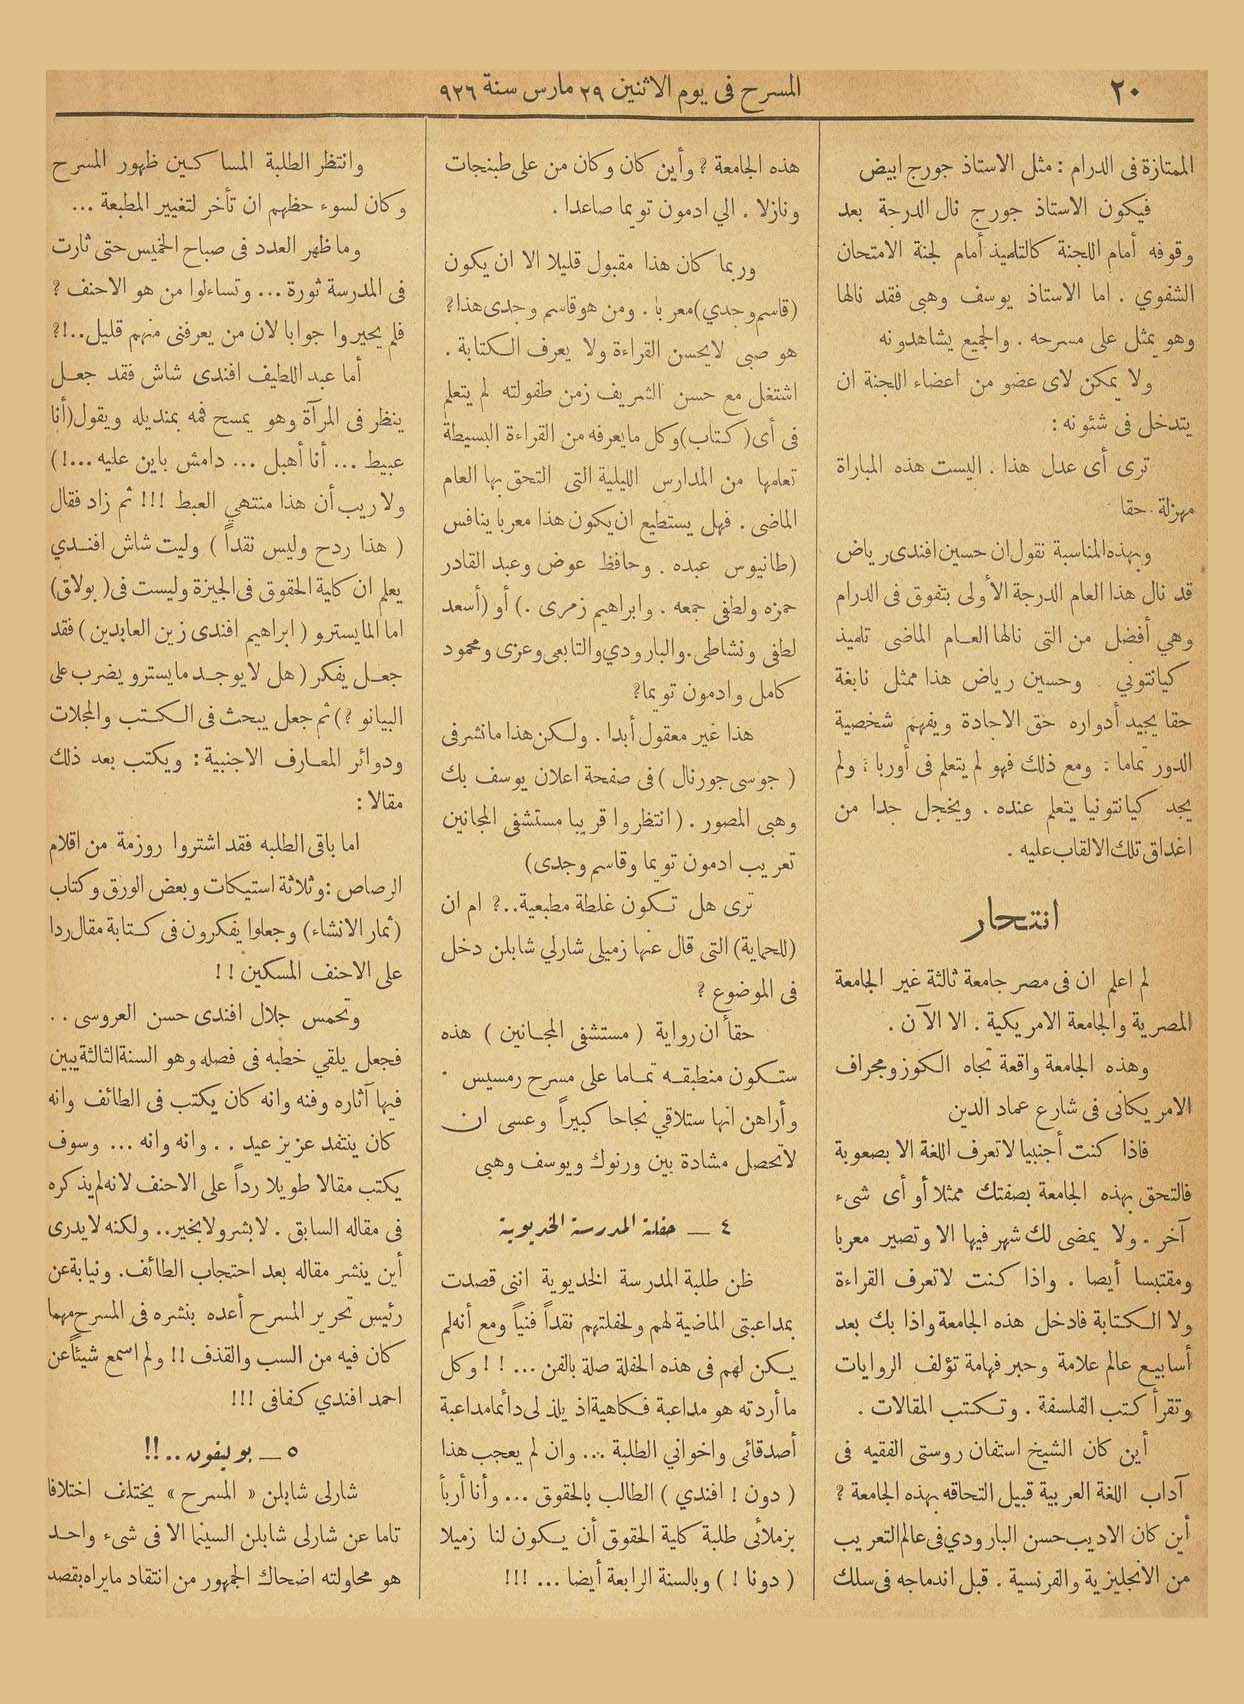 ٢٠
المسرح فى يوم الاثنين ٢٩ مارس سنة ٩٢٦
الممتازة فى الدرام : مثل الاستاذ جورج ابيض
فيكون الاستاذ جورج نال الدرجة بعد
وقوفه أمام اللجنة كالتلميذ أمام لجنة الامتحان
الشفوي . اما الاستاذ يوسف وهبى فقد نالها
وهو يمثل على مسرحه . والجميع يشاهدونه
ولا يمكن لاى عضو من اعضاء اللجنة ان
يتدخل فى شئونه :
ترى أى عدل هذا . اليست هذه المباراة
مهزلة حقا
وبهذه المناسبة نقول ان حسين افندى رياض
قد نال هذا العام الدرجة الأولى بتفوق فى الدرام
وهي أفضل من التى نالها العام الماضى تلميذ
كيانتونى وحسين رياض هذا ممثل نابغة
حقا يجيد أدواره حق الاجادة ويفهم شخصية
الدور تماما : ومع ذلك فهو لم يتعلم فى أوربا ؛ ولم
يجد كيانتونيا يتعلم عنده . ويخجل جدا من
اغداق تلك الالقاب عليه .
انتحار
لم اعلم ان فى مصر جامعة ثالثة غير الجامعة
المصرية والجامعة الامريكية . الا الآن .
وهذه الجامعة واقعة تجاه الكوزومجراف
الامريكانى فى شارع عماد الدين
فاذا كنت أجنبيا لا تعرف اللغة الا بصعوبة
فالتحق بهذه الجامعة بصفتك ممثلا أو أى شىء
آخر . ولا يمضى لك شهر فيها الا وتصير معربا
ومقتبسا أيضا . واذا كنت لاتعرف القراءة
ولا الكتابة فادخل هذه الجامعة واذا بك بعد
أسابيع عالم علامة وحبر فهامة تؤلف الروايات
وتقرأ كتب الفلسفة . وتكتب المقالات .
أين كان الشيخ استفان روستى الفقيه فى
آداب اللغة العربية قبيل التحاقه بهذه الجامعة ؟
أين كان الاديب حسن البارودي فى عالم التعريب
من الانجليزية والفرنسية . قبل اندماجه فى سلك
هذه الجامعة ؟ وأين كان وكان من على طبنجات
ونازلا . الي ادمون تويما صاعدا .
وربما كان هذا مقبول قليلا الا ان يكون
(قاسم وجدي) معربا . ومن هو قاسم وجدى هذا ؟
هو صبى لايحسن القراءة ولا يعرف الكتابة .
اشتغل مع حسن الشريف زمن طفولته لم يتعلم
فى أى (كتاب) وكل ما يعرفه من القراءة البسيطة
تعلمها من المدارس الليلية التى التحق بها العام
الماضى . فهل يستطيع ان يكون هذا معربا ينافس
(طانيوس عبده . وحافظ عوض وعبد القادر
حمزه ولطفى جمعه . وابراهيم زمرى .) أو (أسعد
لطفى ونشاطى . والبارودي والتابعى وعزى ومحمود
كامل وادمون تويما ؟
هذا غير معقول أبدا . ولكن هذا ما نشر فى
( جوسى جورنال ) فى صفحة اعلان يوسف بك
وهبى المصور . ( انتظروا قريبا مستشفى المجانين
تعريب ادمون تويما وقاسم وجدى)
ترى هل تكون غلطة مطبعية ..؟ ام ان
(للحماية) التى قال عنها زميلى شارلي شابلن دخل
فى الموضوع ؟
حقاً ان رواية ( مستشفى المجانين ) هذه
ستكون منطبقه تماما على مسرح رمسيس .
وأراهن انها ستلاقي نجاحا كبيراً وعسى ان
لاتحصل مشادة بين ورنوك ويوسف وهبى
٤ — حفلة المدرسة الخديوية
ظن طلبة المدرسة الخديوية اننى قصدت
بمداعبتى الماضية لهم ولحفلتهم نقداً فنياً ومع أنه لم
يكن لهم فى هذه الحفلة صلة بالفن ... ! ! وكل
ما أردته هو مداعبة فكاهية اذ يلذ لى دائما مداعبة
أصدقائى واخواني الطلبة ... وان لم يعجب هذا
( دون ! افندي ) الطالب بالحقوق ... وأنا أربأ
بزملائى طلبة كلية الحقوق أن يكون لنا زميلا
( دونا ! ) وبالسنة الرابعة أيضا ... !!!
وانتظر الطلبة المساكين ظهور المسرح
وكان لسوء حظهم ان تأخر لتغيير المطبعة ...
وما ظهر العدد فى صباح الخميس حتى ثارت
فى المدرسة ثورة ... وتساءلوا من هو الاحنف ؟
فلم يحيروا جوابا لان من يعرفنى منهم قليل ..!؟
أما عبد اللطيف افندى شاش فقد جعل
ينظر فى المرآة وهو يمسح فمه بمنديله ويقول (أنا
عبيط ... أنا أهبل ... دامش باين عليه ...!)
ولا ريب أن هذا منتهي العبط !!! ثم زاد فقال
( هذا ردح وليس نقداً ) وليت شاش افندي
يعلم ان كلية الحقوق فى الجيزة وليست فى ( بولاق)
اما المايسترو ( ابراهيم افندى زين العابدين ) فقد
جعل يفكر ( هل لا يوجد مايسترو يضرب على
البيانو ؟) ثم جعل يبحث فى الكتب والمجلات
ودوائر المعارف الاجنبية : ويكتب بعد ذلك
مقالا :
اما باقى الطلبه فقد اشتروا روزمة من اقلام
الرصاص : وثلاثة استيكات وبعض الورق وكتاب
(ثمار الانشاء) وجعلوا يفكرون فى كتابة مقال ردا
على الاحنف المسكين ! !
وتحمس جلال افندى حسن العروسى . .
فجعل يلقي خطبه فى فصله وهو السنة الثالثة يبين
فيها آثاره وفنه وانه كان يكتب فى الطائف وانه
كان ينتقد عزيز عيد . . وانه وانه ... وسوف
يكتب مقالا طويلا رداً على الاحنف لانه لم يذكره
فى مقاله السابق . لا بشر ولا بخير .. ولكنه لا يدرى
أين ينشر مقاله بعد احتجاب الطائف . ونيابة عن
رئيس تحرير المسرح أعده بنشره فى المسرح مهما
كان فيه من السب والقذف !! ولم اسمع شيئاً عن
احمد افندي كفافى !!!
٥ — بوليفون ..!!
شارلى شابلن « المسرح » يختلف اختلافا
تاما عن شارلى شابلن السينما الا فى شىء واحد
هو محاولته اضحاك الجمهور من انتقاد مايراه بقصد